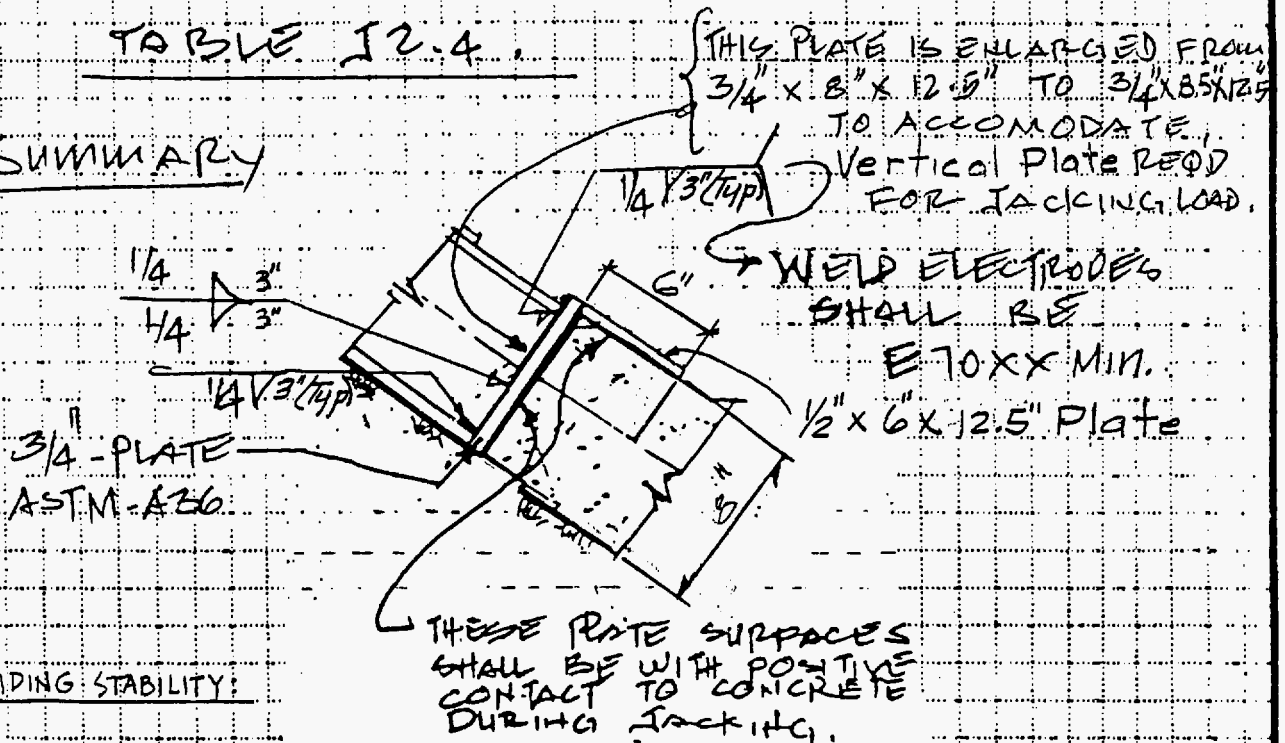 TABLE J2.4.
SUMMARY
THIS PLATE IS ENLARGED FROM
3/4" x 8" x 12.5" TO 3/4"x8.5"x12.5"
TO ACCOMODATE
Vertical Plate REQ'D
FOR JACKING LOAD.
1/4 3"(Typ)
WELD ELECTRODES
SHALL BE
E70XX MIN.
1/4 3"
1/4 3"
6"
1/4 3"(Typ)
1/2" x 6" x 12.5" Plate
3/4" - PLATE
ASTM-A36
8"
THESE PLATE SURFACES
SHALL BE WITH POSITIVE
CONTACT TO CONCRETE
DURING JACKING.
DING STABILITY: